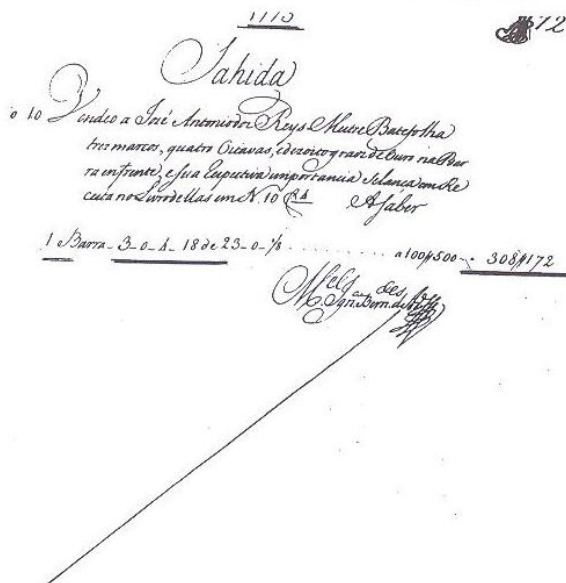 72
Sahida
Vendeo a José Antonio dos Reys Mestre Batefolha
tres marcos, quatro Oitavas, e dezoito graos de Ouro na Bar
ra em frente, e sua Respectiva importancia Se lança em Re
ceita no Livro dellas em N. 10 A Saber
1 Barra 3-0-4-18 de 23-0-1/8 a 100$500 308$172